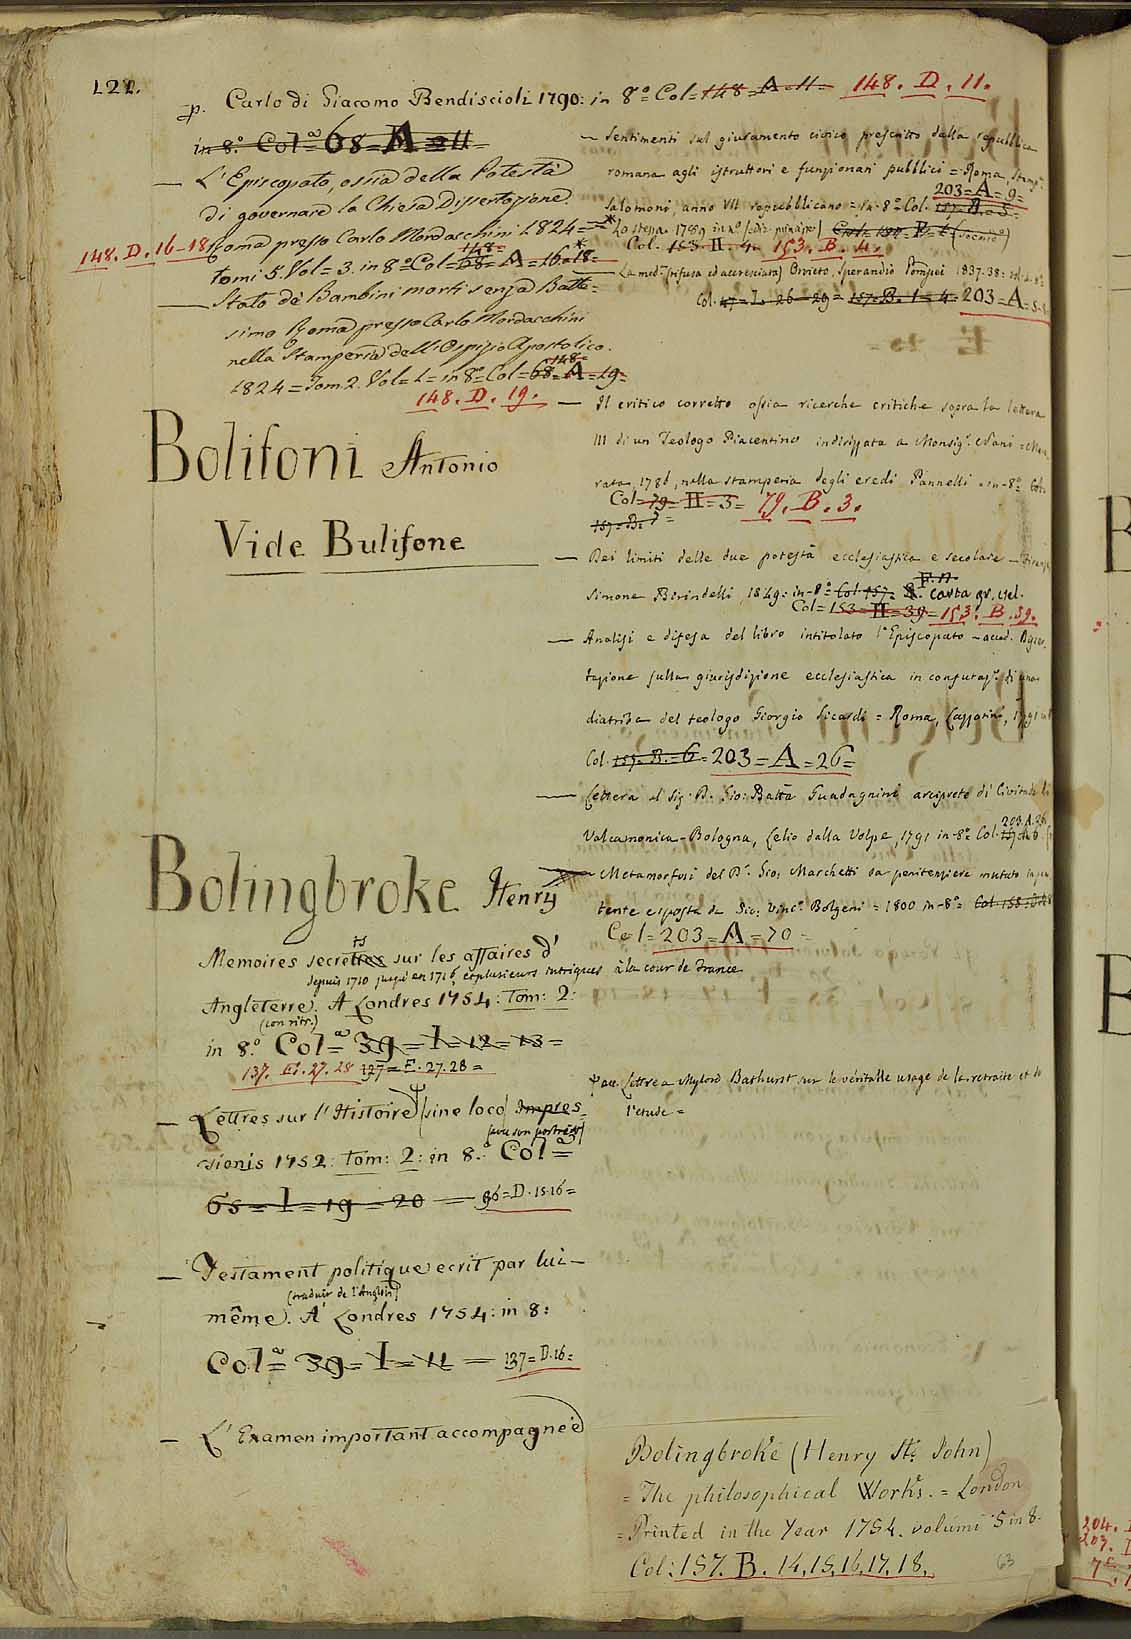 122.
p. Carlo di Giacomo Bendiscioli 1790: in 8º= Col= 148 = A = 11 = 148. D. 11.
in 8º. Colª= 68 = A = 11 =
— L'Episcopato, ossia della Potestà
di governare la Chiesa Dissertazione.
148. D. 16-18 Roma presso Carlo Mordacchini 1824=
148=
tomi 5. Vol= 3. in 8º= Col= 68= A = 16 a 18=
— Stato de' Bambini morti senza Batte=
simo Roma presso Carlo Mordacchini
nella Stamperia dell'Ospizio Apostolico.
148=
1824= Tom 2. Vol= 1= in 8º= Col= 68= A = 19=
148. D. 19.
Bolifoni Antonio
Vide Bulifone
Bolingbroke Henry
Memoires secretes sur les affaires d'
depuis 1710 jusqu'en 1716, et plusieurs intrigues à la cour de France
Angleterre. A Londres 1754: Tom: 2:
(con ritr.)
in 8.º Colª= 39= I= 12= 13=
137. E. 27. 28 137= E. 27. 28 =
— Lettres sur l'Histoire (sine loco) Impres=
(avec son portrait)
sionis 1752: Tom: 2: in 8.º Colª=
65= I= 19= 20 — 96= D. 15.16=
— Testament politique ecrit par lui-
(traduit de l'Anglois)
même. A' Londres 1754: in 8:
Colª= 39= I= 11 — 137= D. 16=
— L'Examen important accompagneè
— Sentimenti sul giuramento civico prescritto dalla repubblica
romana agli istruttori e funzionari pubblici = Roma, stamp.
203= A= 9=
Salomoni, anno VII repubblicano = in-8º= Col. 157= B= 5=
* Lo stesso. 1789 in 8º (ediz. principe)
Col. 153. II. 4. 153. B. 4.
— La med.ª (rifusa ed accresciuta) Orvieto, Sperandio Pompei 1837-38=
Col. 47= I= 26-29= 157= B. 1= 4= 203= A= 5-8
— Il critico corretto ossia ricerche critiche sopra la lettera
III di un Teologo Piacentino indirizzata a Monsig.r Nani =
rata, 1786, nella stamperia degli eredi Pannelli = in-8º= Col.
Col= 79= II= 3= 79. B. 3.
157= B= 7=
— Dei limiti delle due potestà ecclesiastica e secolare —
Simone Birindelli, 1849= in-8º= Col 157= carta gr. vel.
Col= 153= II= 39= 153. B. 39.
— Analisi e difesa del libro intitolato l'Episcopato —
tazione sulla giurisdizione ecclesiastica in confutaz.e di una
diatriba del teologo Giorgio Sicardi = Roma, Lazzarini, 1791
Col. 157= B.= 6= 203= A= 26=
— Lettera al Sig.r D. Gio: Batta Guadagnini arciprete di Cividate
203. A. 26
Valcamonica = Bologna, Lelio dalla Volpe, 1791 in-8º= Col.
— Metamorfosi del D.r Gio: Marchetti da penitenziere mutato in peni
tente esposta da Gio: Vinc.º Bolgeni = 1800 in-8º=
Col= 203= A= 70=
avec Lettre a Mylord Bathurst sur le veritable usage de la retraite et de
l'etude =
Bolingbroke (Henry St. John)
= The philosophical Works. = London
= Printed in the Year 1754. volumi 5 in 8.
Col: 157. B. 14, 15, 16, 17, 18.
63
B
B
204.
203.